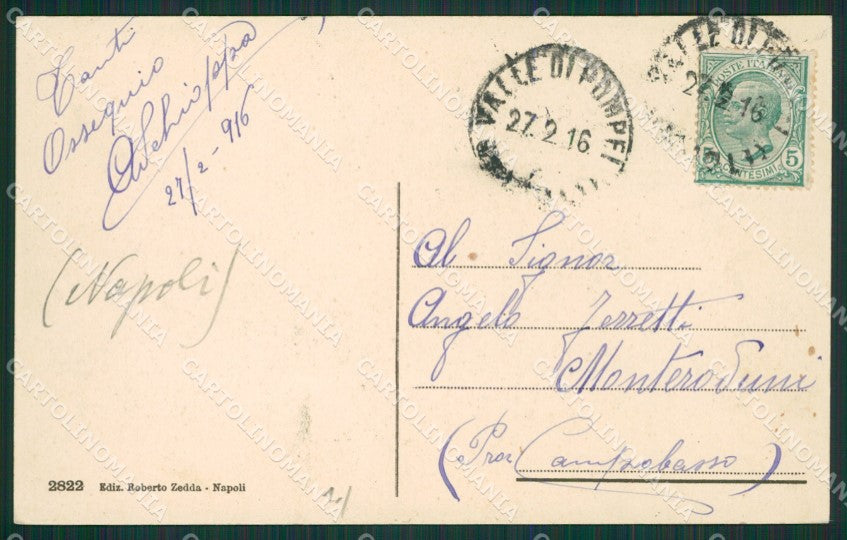 Tanti
Ossequio
27/2-916
(Napoli)
VALLE DI POMPEI
27.2.16
VALLE DI
27.2.16
POSTE ITALIANE
5 5
CENTESIMI
Al Signor
Angelo Ferretti
Monteroduni
(Prov Campobasso)
2822 Ediz. Roberto Zedda - Napoli
CARTOLINOMANIA